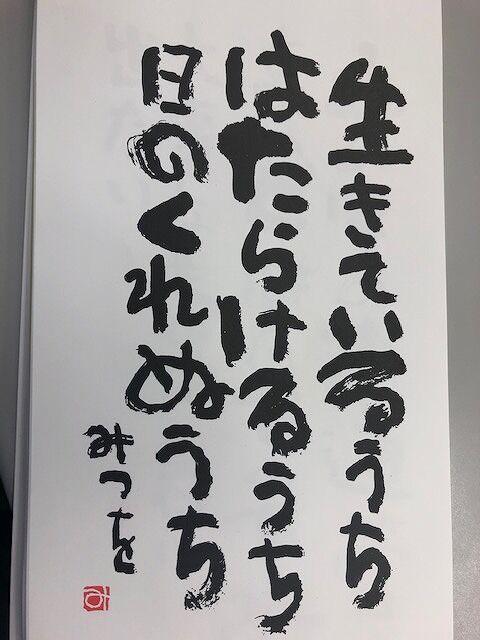 生きているうち
はたらけるうち
日のくれぬうち
みつを
み